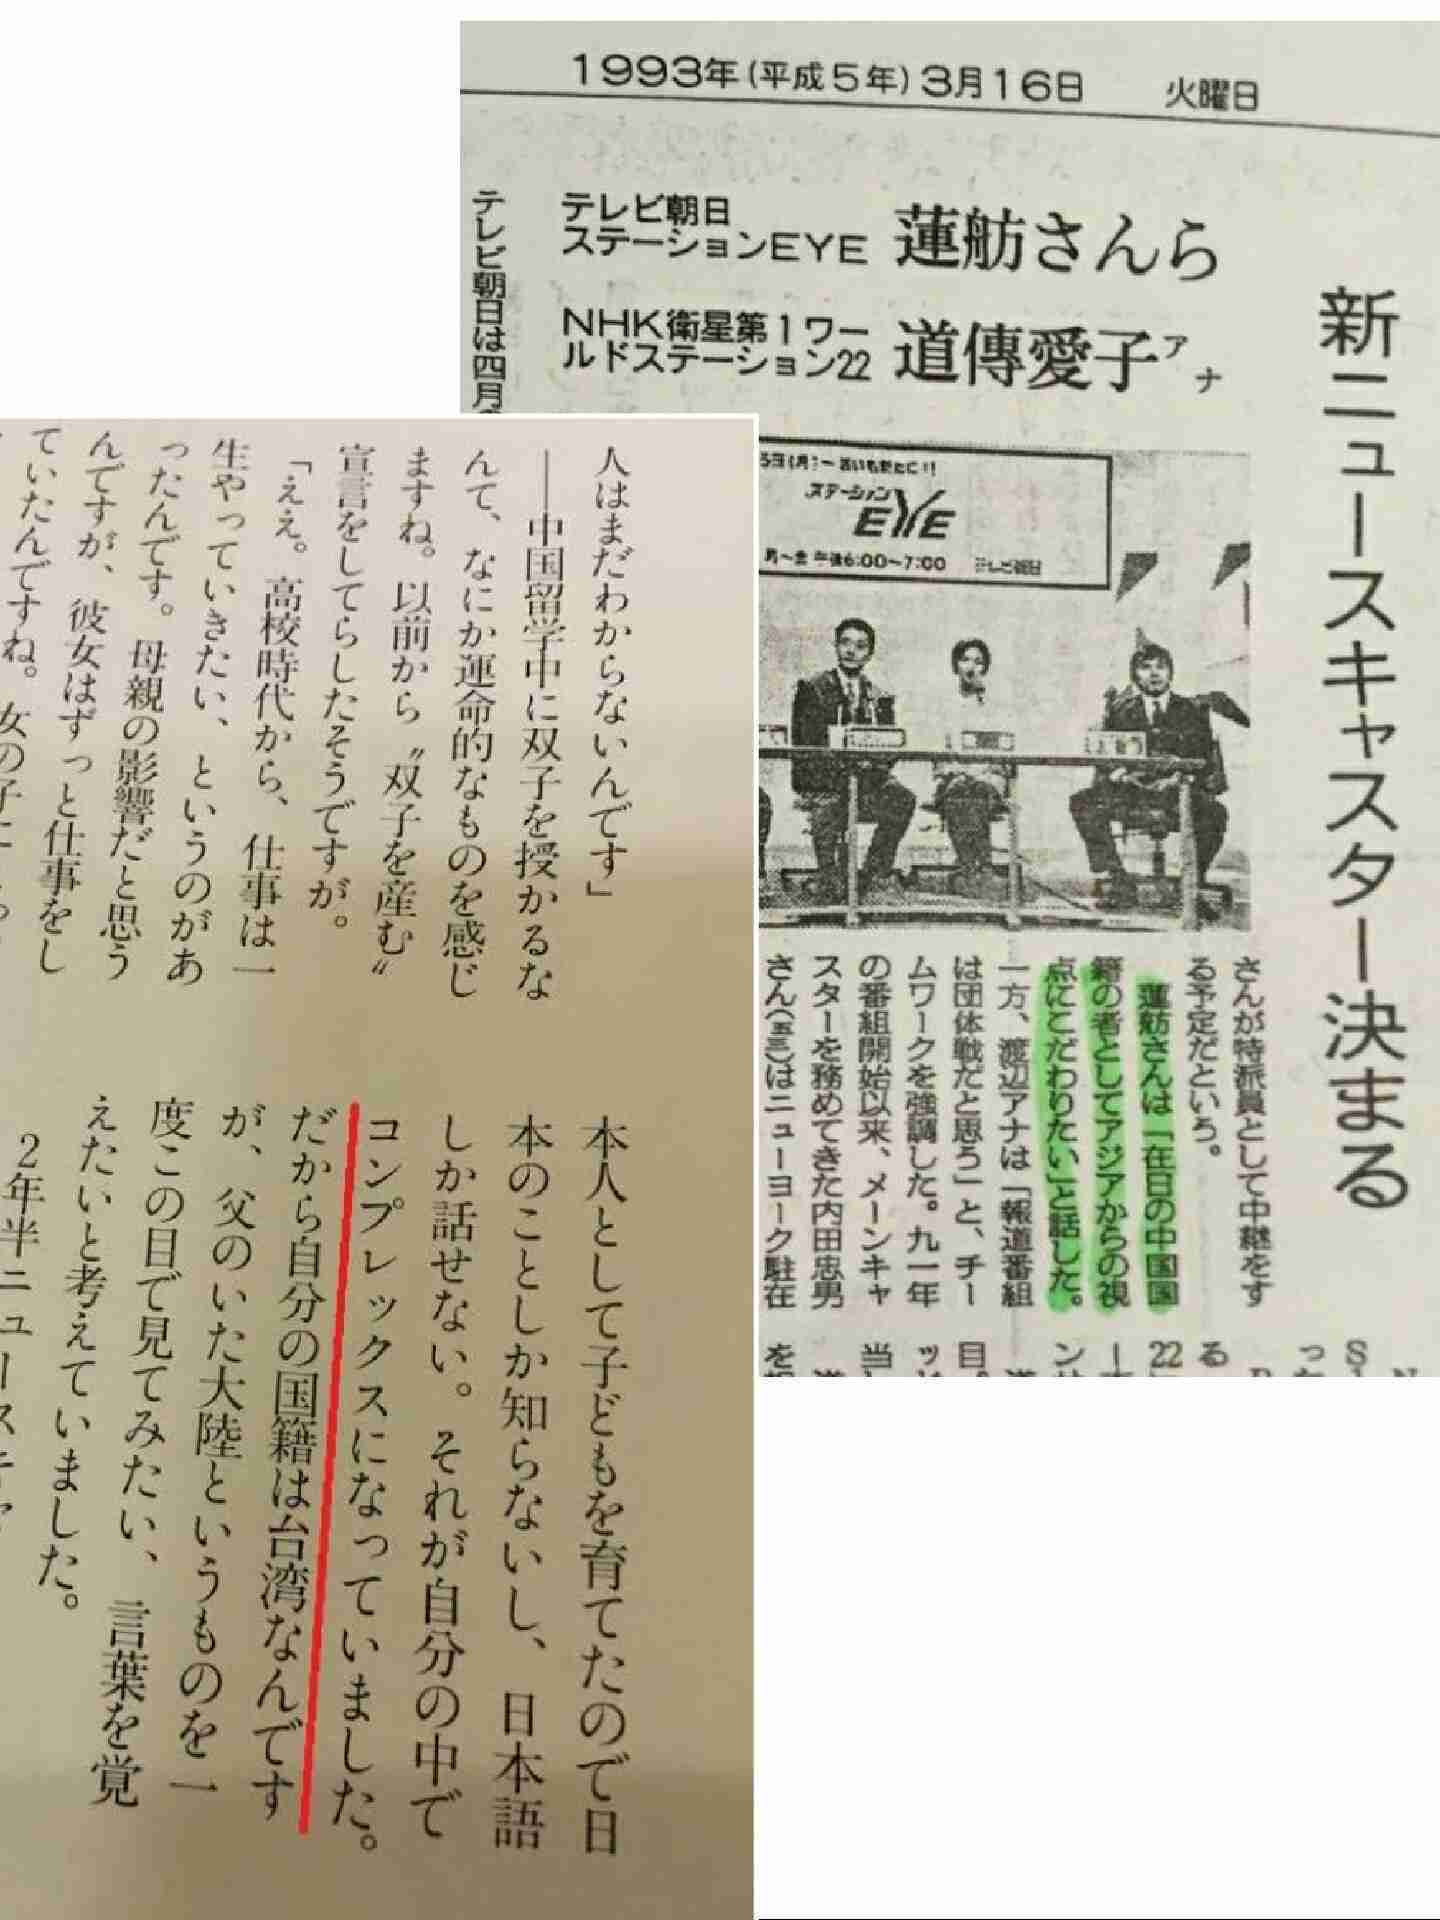 1993年(平成5年)3月16日 火曜日
新ニュースキャスター決まる
テレビ朝日
ステーションEYE 蓮舫さんら
NHK衛星第1ワー
ルドステーション22 道傳愛子アナ
テレビ朝日は四月
ステーション
EYE
午後6:00〜7:00
テレビ朝日
さんが特派員として中継をす
る予定だという。
蓮舫さんは「在日の中国国
籍の者としてアジアからの視
点にこだわりたい」と話した。
一方、渡辺アナは「報道番組
は団体戦だと思う」と、チー
ムワークを強調した。九一年
の番組開始以来、メーンキャ
スターを務めてきた内田忠男
さん(五三)はニューヨーク駐在
人はまだわからないんです」
――中国留学中に双子を授かるな
んて、なにか運命的なものを感じ
ますね。以前から〝双子を産む〟
宣言をしてらしたそうですが。
「ええ。高校時代から、仕事は一
生やっていきたい、というのがあ
ったんです。母親の影響だと思う
んですが、彼女はずっと仕事をし
ていたんですね。女の子に
本人として子どもを育てたので日
本のことしか知らないし、日本語
しか話せない。それが自分の中で
コンプレックスになっていました。
だから自分の国籍は台湾なんです
が、父のいた大陸というものを一
度この目で見てみたい、言葉を覚
えたいと考えていました。
2年半ニュースキャ